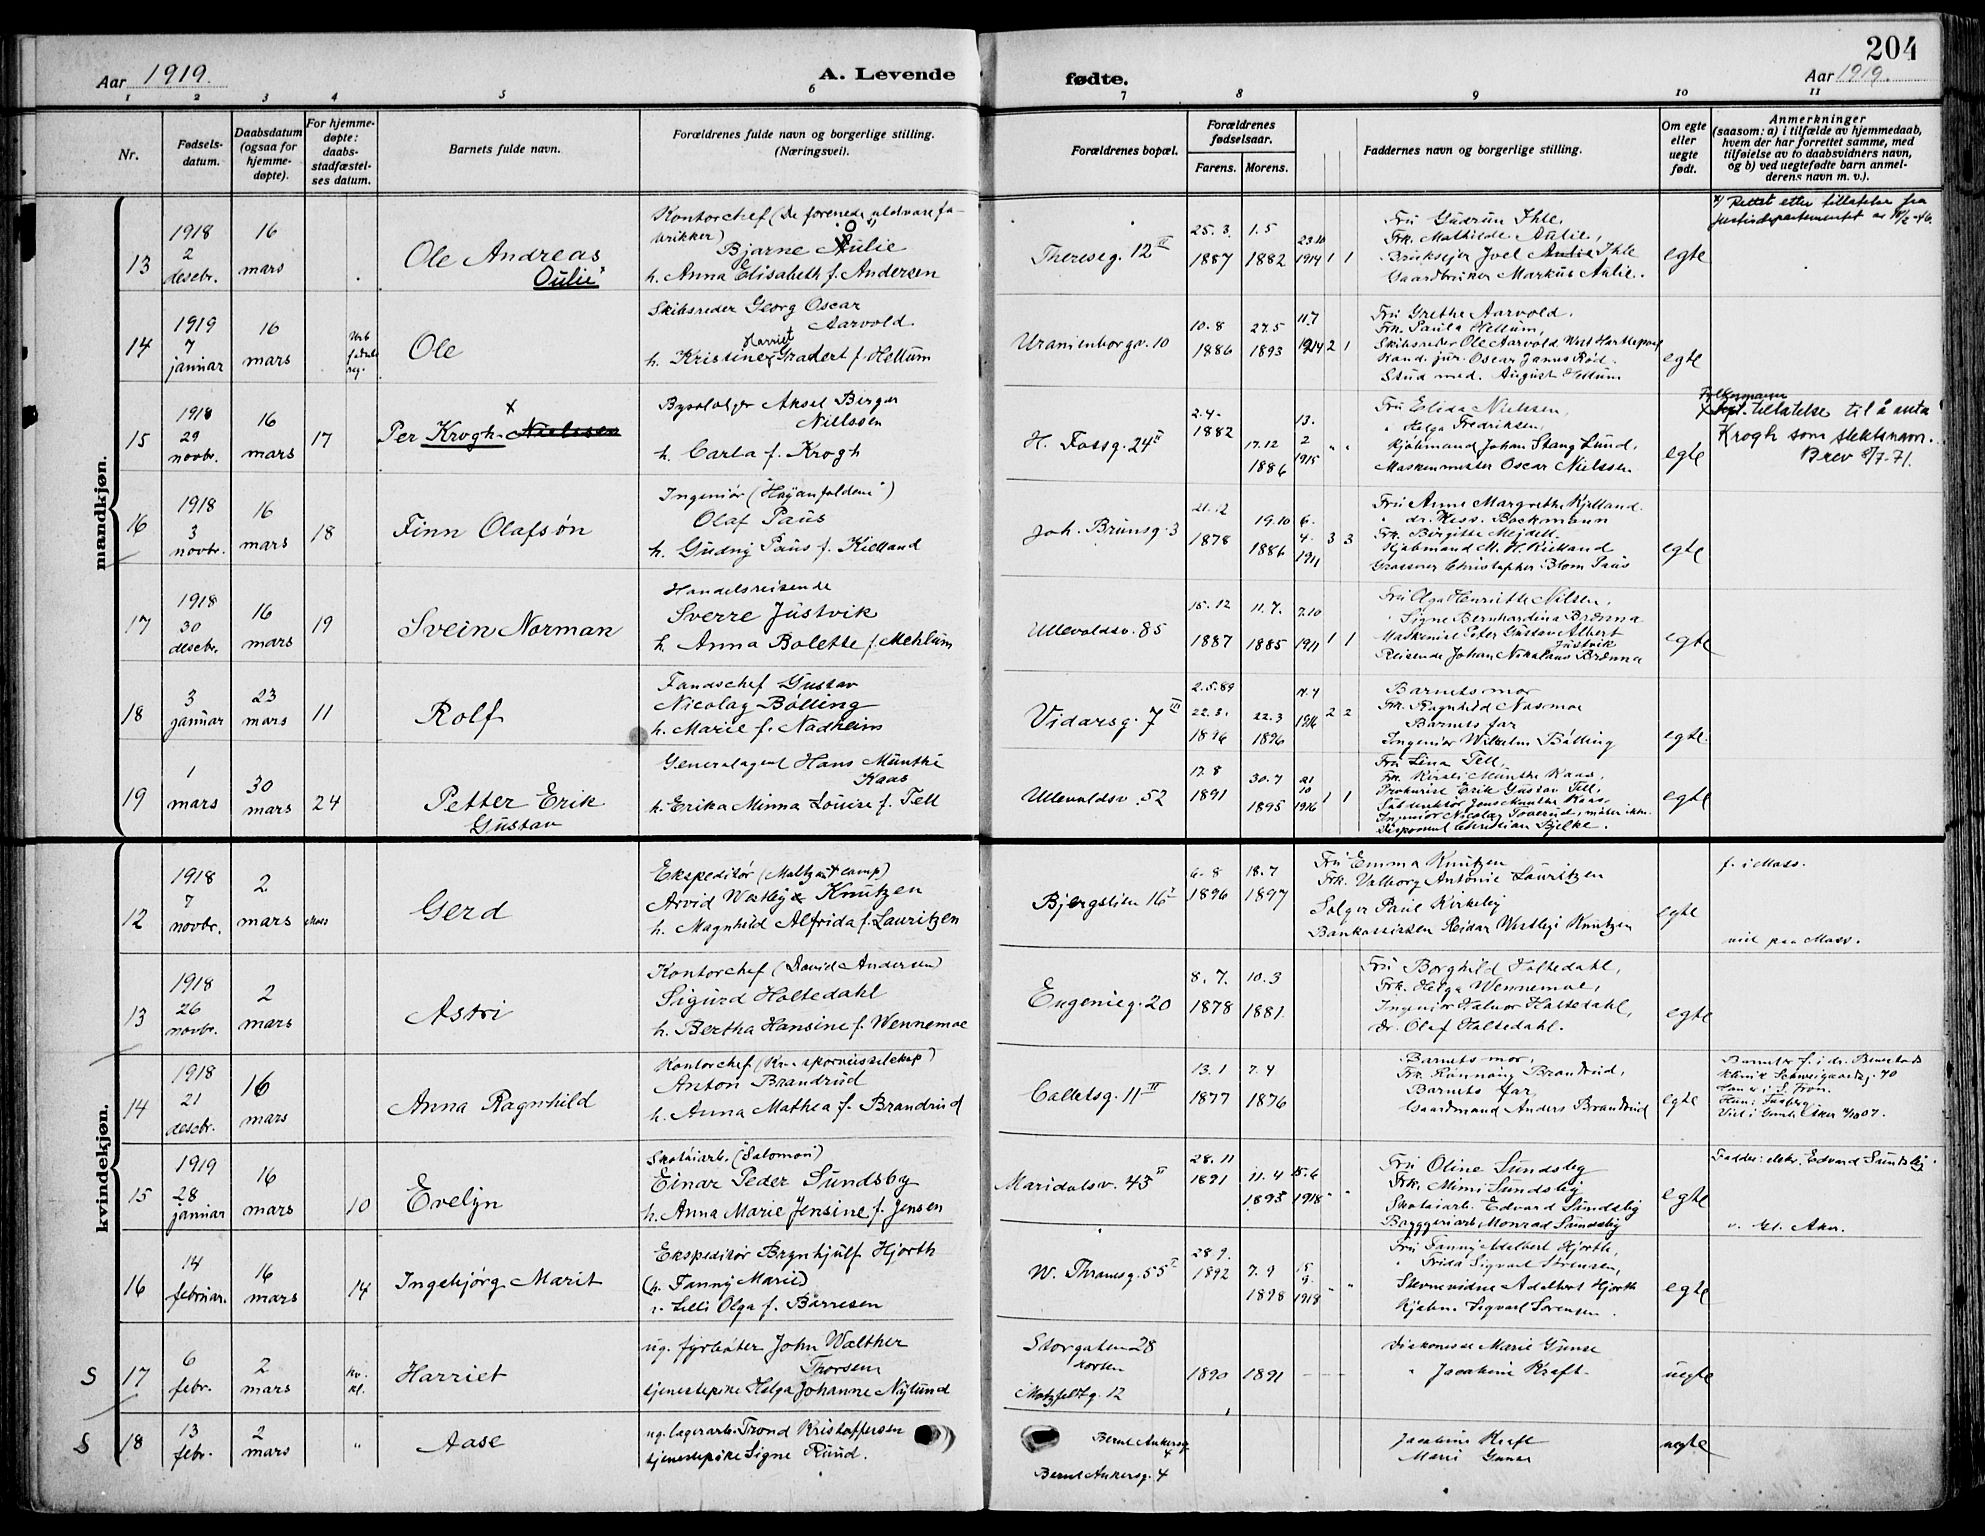 204
Aar 1919.
A. Levende
fødte.
Aar 1919.
1 2 3 4 5 6 7 8 9 10 11
Nr.
Fødsels-
datum.
Daabsdatum
(ogsaa for
hjemme-
døpte).
For hjemme-
døpte:
daabs-
stadfæstel-
ses datum.
Barnets fulde navn.
Forældrenes fulde navn og borgerlige stilling.
(Næringsvei).
Forældrenes bopæl.
Forældrenes
fødselsaar.
Farens. Morens.
Faddernes navn og borgerlige stilling.
Om egte
eller
uegte
født.
Anmerkninger
(saasom: a) i tilfælde av hjemmedaab,
hvem der har forrettet samme, med
tilføielse av to daabsvidners navn,
og b) ved uegtefødte barn anmel-
derens navn m. v.).
mandkjøn.
13
1918
2
desebr.
16
mars
Ole Andreas
Oulie
Kontorchef (De forenede uldvarefa-
brikker)
Bjarne Aulie
h. Anna Elisabeth f. Andersen
Thereseg. 12 II
25.3. 1887
1.5 1882
23.10 1914 1 1
Fru Gudrun Ihle,
Frk. Mathilde Aulie,
Bruksejer Joel Aulie Ihle
Gaardbruker Markus Aulie.
egte
x) Rettet efter tillatelse fra
Justisdepartementet av
14
1919
7
januar
16
mars
Ole
Skibsreder Georg Oscar
Aarvold
Harriet
h. Kristine Gradert f. Hellum
Uranienborgv. 10
10.8 1886
27.5 1893
11.7 1914 2 1
Fru Grethe Aarvold,
Frk. Paula Hellum,
Skibsreder Ole Aarvold West Hartlepool
Kand. jur. Oscar Janus Rød.
Stud med. August Hellum
egte
15
1918
29
novbr.
16
mars
17
Per Krogh-Nielssen
x
Aksel Birger
Nielssen
h. Carla f. Krogh
H. Fossg. 24 II
2.4. 1882
17.12 1886
13. 2 1915 " "
Fru Elida Nielsen,
" Helga Fredriksen,
Kjøbmand Johan Stang Lund,
Maskinmester Oscar Nielssen
egte
tillatelse til å anta
Krogh som slektsnavn.
Brev 8/7-71.
16
1918
3
novbr.
16
mars
18
Finn Olafsøn
Ingeniør
Olaf Paus
h. Gudny Paus f. Kielland
Joh. Brunsg. 3
21.2 1878
19.10 1886
6. 4. 1911 3 3
Fru Anne Margrethe Kjelland
" dr. Kiss. Backmann
Frk. Birgitte Mejdell
Kjøbmand M. H. Kielland
Grosserer Christopher Blom Paus
egte
17
1918
30
desebr.
16
mars
19
Svein Norman
Handelsreisende
Sverre Justvik
h. Anna Bolette f. Mehlum
Ullevoldsv. 85
15.12 1887
11.7. 1885
7.10 1911 1 1
Fru Olga Henriette Nilsen,
" Signe Bernhardina Brønna
Maskinist Peter Gustav Albert
Justvik
Reisende Johan Nikolaus Brønna
egte
18
3
januar
23
mars
11
Rolf
Fondschef Gustav
Nicolay Bølling
h. Marie f. Nadheim
Vidarsg. 7 III
2.5.89
22.3. 1896
22.3 1896
1916 2 2
Barnets mor
Frk. Ragnhild Nasmoe
Barnets far
Ingeniør Wilhelm Bølling
egte
19
1
mars
30
mars
24
Petter Erik
Gustav
Generalagent Hans Munthe
Kaas
h. Erika Minna Louise f. Tell
Ullevoldsv. 52
17.8 1891
30.7 1895
21 10 1916 1 1
Fru Lina Tell,
Frk. Kirsti Munthe Kaas,
Prokurist Erik Gustav Tell,
Ingeniør Nicolay
Disponent Christian Bjelke.
egte
kvindekjøn.
12
1918
7
novbr.
2
mars
Moss
Gerd
Ekspeditør
Arvid Westlye Knutzen
h. Magnhild Alfrida f. Lauritzen
Bjergslien 16 I
6.8 1896
18.7 1897
Fru Emma Knutzen
Frk. Valborg Antonie Lauritzen
Selger Paul Kirkeby
Bankassistent Reidar Westlye Knutzen
egte
f. i Moss.
viet paa Moss.
13
1918
26
novbr.
2
mars
Astri
Kontorchef (David Andersen)
Sigurd Holtedahl
h. Bertha Hansine f. Wennemoe
Eugenieg. 20
8.7. 1878
10.3 1881.
Fru Borghild Holtedahl,
Frk. Helga Wennemoe,
Ingeniør Halvor Holtedahl,
dr. Olaf Holtedahl.
egte
14
1918
21
desebr.
16
mars
Anna Ragnhild
Kontorchef (Kr. a sporveisselskap)
Anton Brandrud
h. Anna Mathea f. Brandrud
Calletsg. 11 III
13.1 1877
7.4 1876
Barnets mor,
Frk. Rønnaug Brandrud,
Barnets far
Gaardmand Anders Brandrud
egte
Klinik Schweigaardsg. 70
15
1919
28
januar
16
mars
10
Evelyn
Skotøiarb. (Salomon)
Einar Peder Sundsby
h. Anna Marie Jensine f. Jensen
Maridalsv. 43 II
28.11 1891
11.4 1893
15.6 1918 " "
Fru Oline Sundsby
Frk. Mimi Sundsby
Skotøiarb. Edvard Sundsby
Bryggeriarb. Monrad Sundsby
egte
Fadder: elektr. Edvard Sundsby.
v. Aker.
16
14
februar.
16
mars
14
Ingebjørg Marit
Ekspeditør Brynhjulf Hjorth
(h. Fanny Marie)
Lilli Olga f. Børresen
W. Thranesg. 55 I
28.9. 1892
7.9 1898
15 9. 1918 " "
Fru Fanny Adelbert Hjorth,
" Frida Sigvart Sørensen,
Adelbert Hjorth
Kjøbm. Sigvart Sørensen.
egte
S
17
6
febr.
2
mars
kv.
kl.
Harriet
ug. fyrbøter John Walther
Thorsen
tjenestepike Helga Johanne Nylund
Storgaten 28
Motzfeldtg. 12
1890 1891
Diakonesse Marie Gunse
" Jacobine Kraft
uegte
S
18
13
febr.
2
mars
"
Aase
ug. lagerarb. Trond Kristoffersen
tjenestepike Signe Ruud.
Bernt Ankersg.
4
Bernt Ankersg. 4
Jacobine Kraft
Marie Gunse
uegte